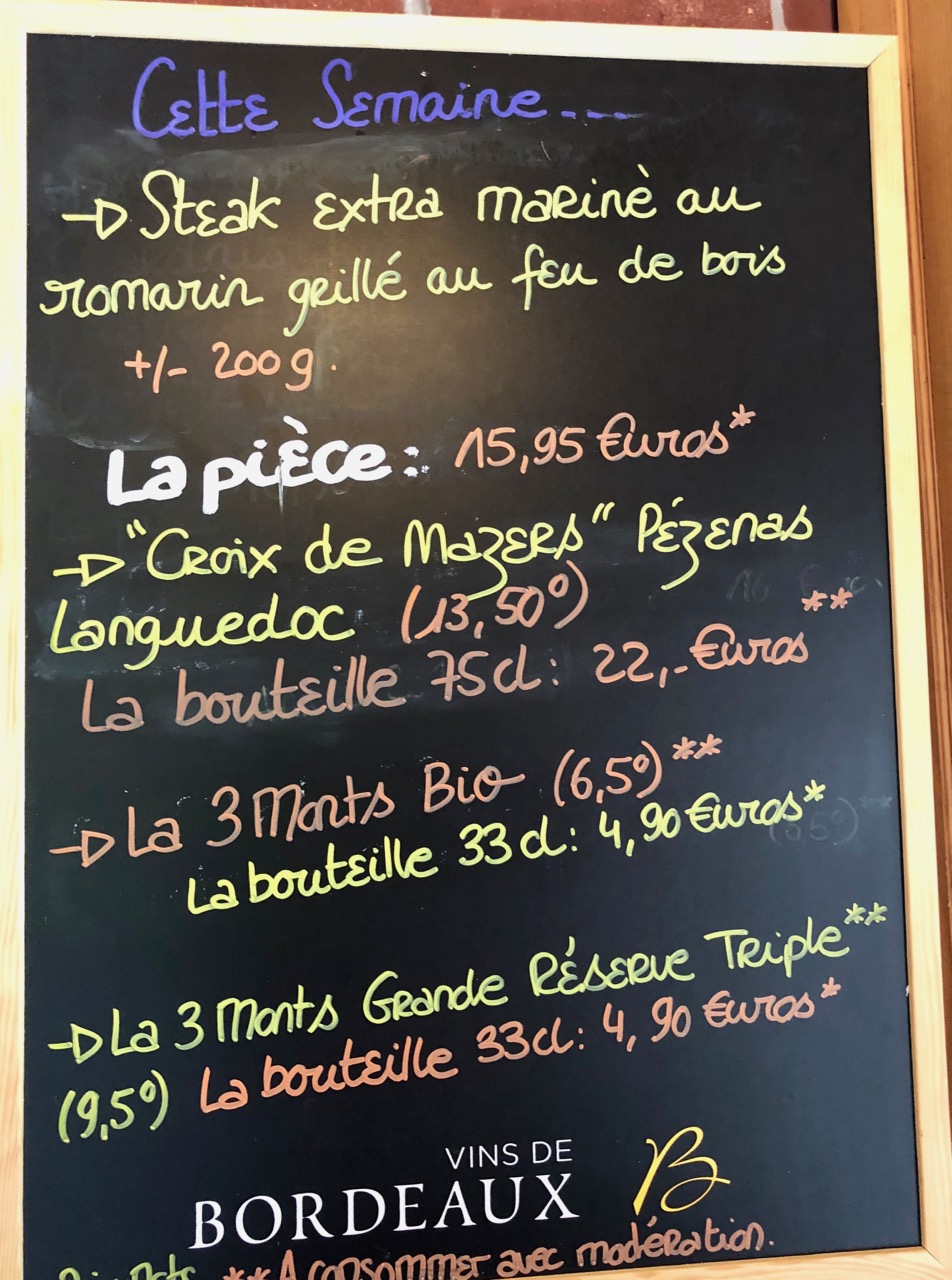 Cette Semaine...
→ Steak extra marinè au
romarin grillé au feu de bois
+/- 200g.
La pièce: 15,95 Euros*
→ "Croix de Mazers" Pézenas
Languedoc (13,50°)
La bouteille 75cl: 22,- Euros**
→ La 3 Monts Bio (6,5°)**
La bouteille 33cl: 4,90 Euros*
→ La 3 Monts Grande Réserve Triple**
(9,5°) La bouteille 33cl: 4,90 Euros*
VINS DE
BORDEAUX B
** A consommer avec modération.